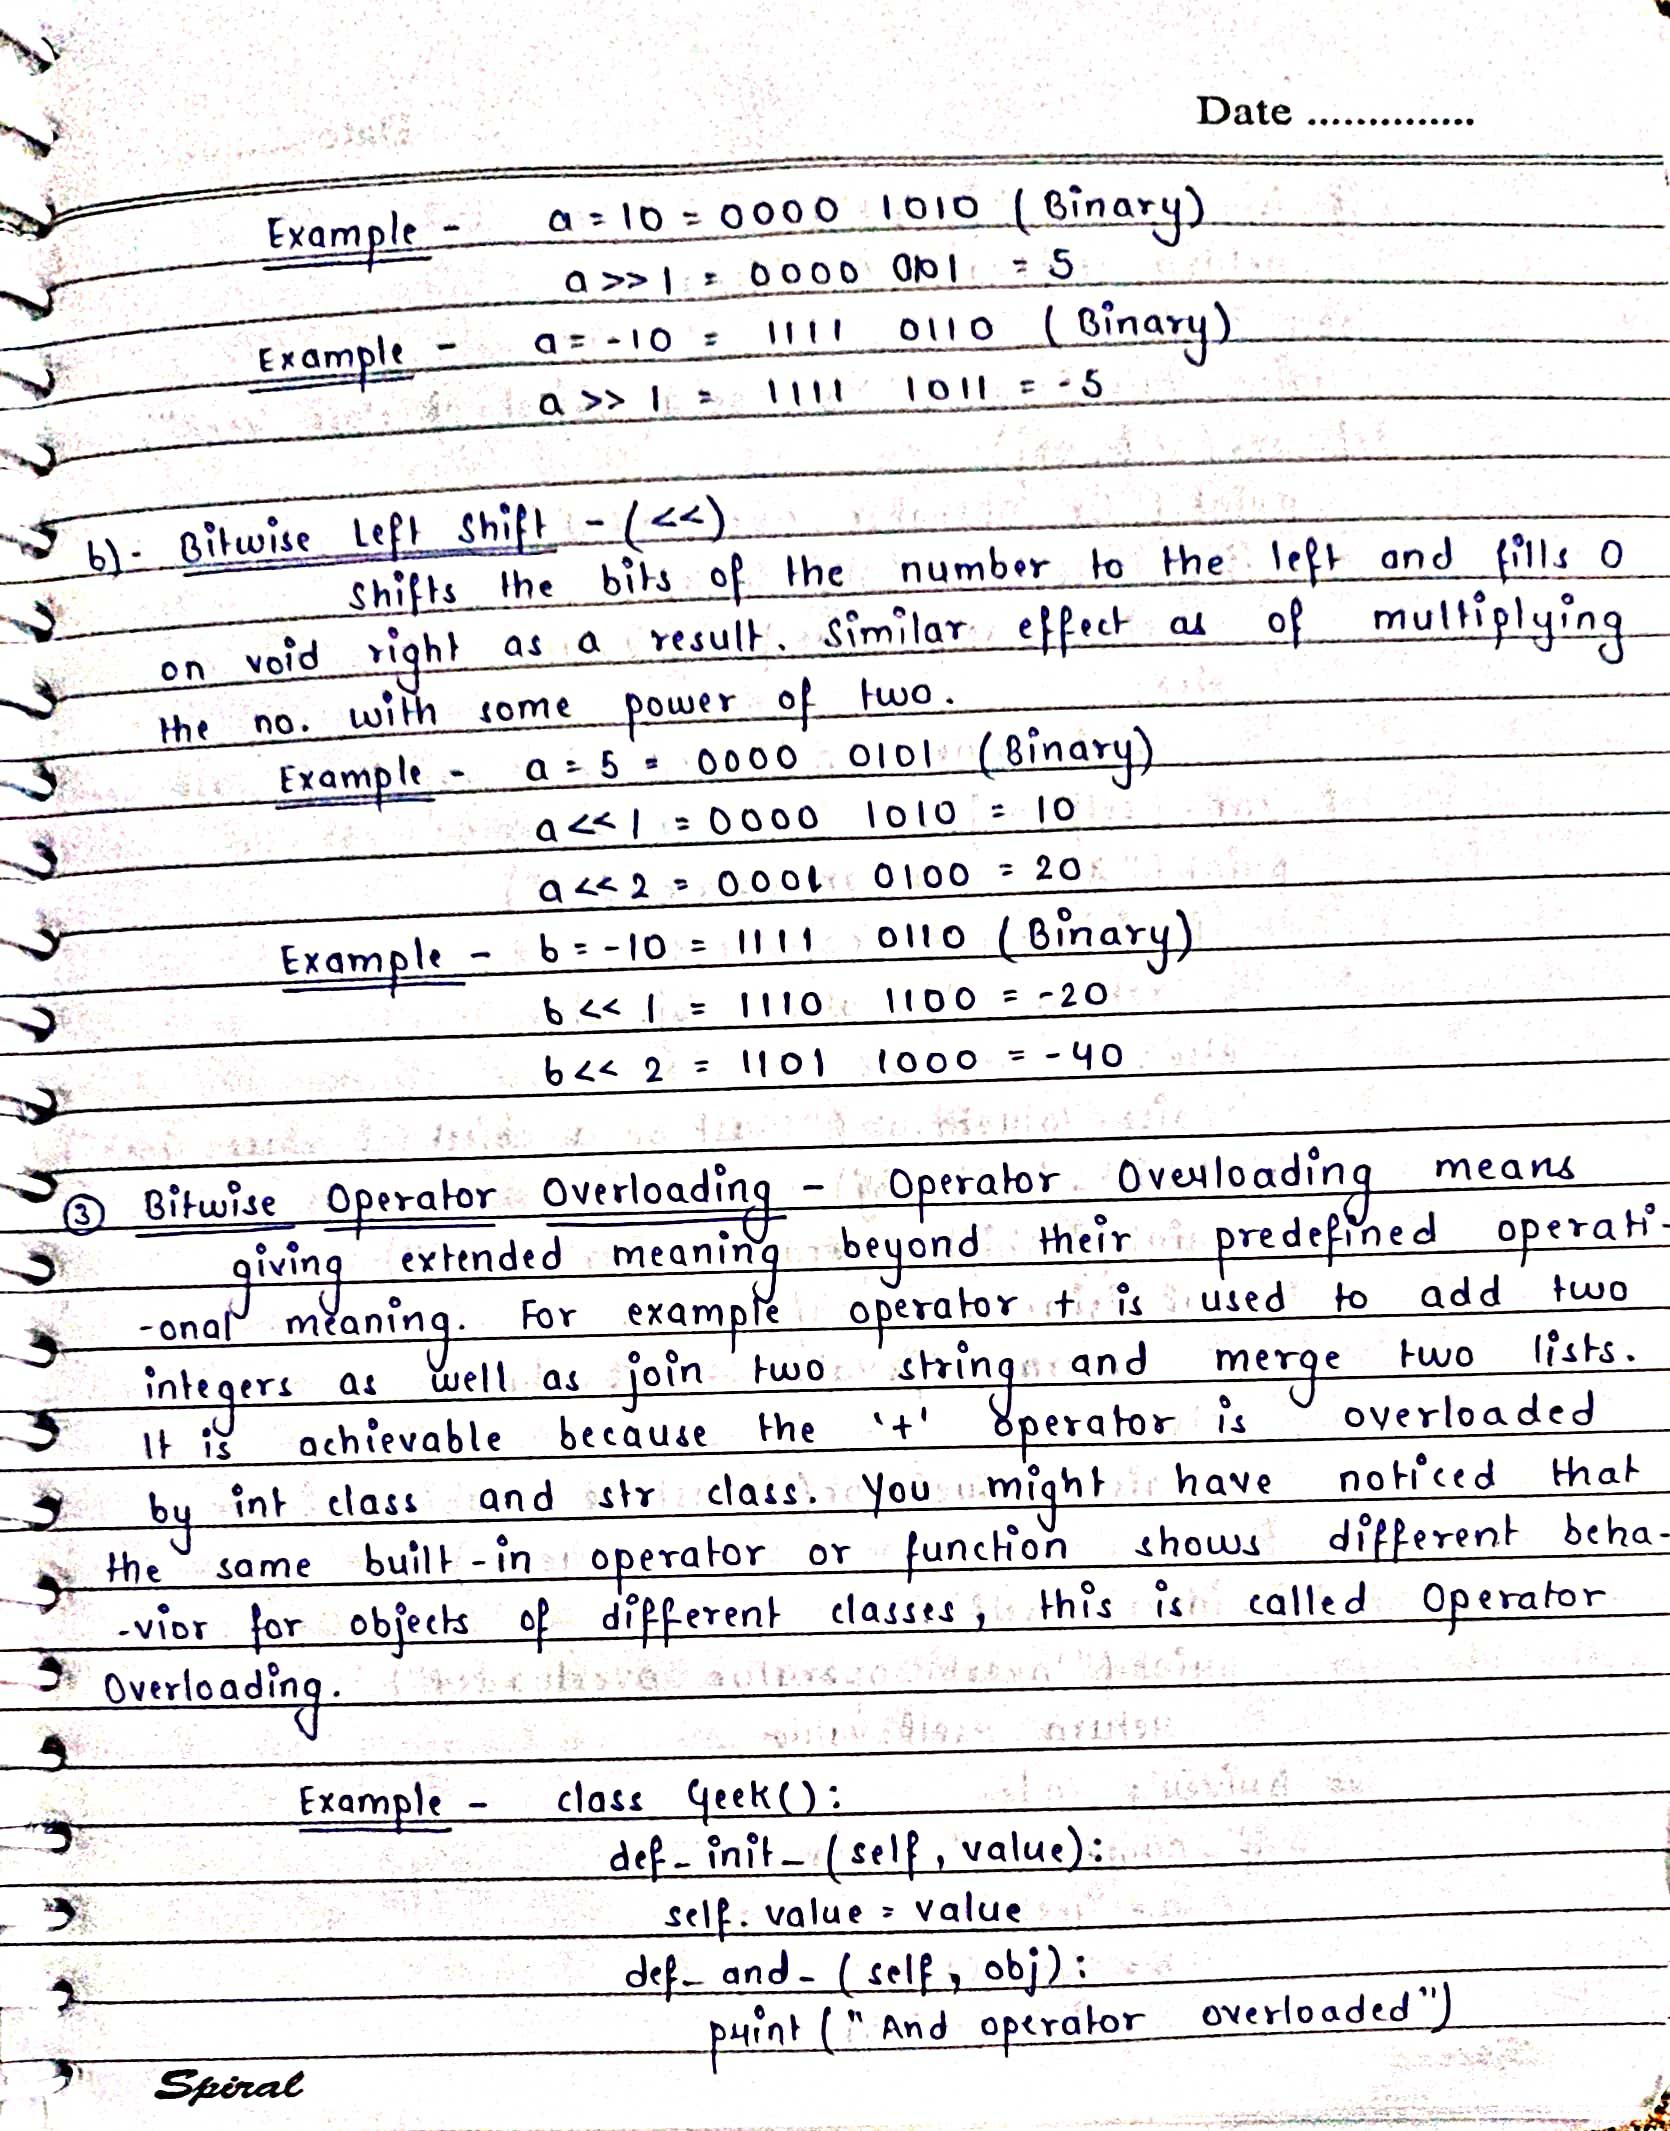 Date ..............
Example - a = 10 = 0000 1010 (Binary)
a >> 1 = 0000 0101 = 5
Example - a = -10 = 1111 0110 (Binary)
a >> 1 = 1111 1011 = -5
b)- Bitwise Left Shift - (<<)
Shifts the bits of the number to the left and fills 0
on void right as a result. Similar effect as of multiplying
the no. with some power of two.
Example - a = 5 = 0000 0101 (Binary)
a << 1 = 0000 1010 = 10
a << 2 = 0001 0100 = 20
Example - b = -10 = 1111 0110 (Binary)
b << 1 = 1110 1100 = -20
b << 2 = 1101 1000 = -40
③ Bitwise Operator Overloading - Operator Overloading means
giving extended meaning beyond their predefined operati-
-onal meaning. For example operator + is used to add two
integers as well as join two string and merge two lists.
It is achievable because the '+' operator is overloaded
by int class and str class. You might have noticed that
the same built-in operator or function shows different beha-
-vior for objects of different classes, this is called Operator
Overloading.
Example - class Geek():
def_init_(self, value):
self.value = value
def_and_(self, obj):
print("And operator overloaded")
Spiral